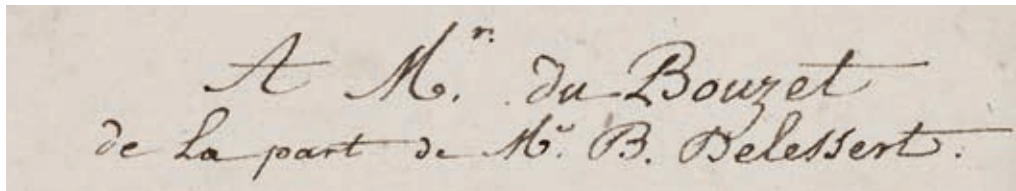 A Mr. du Bouzet
de la part de Mr. B. Delessert.